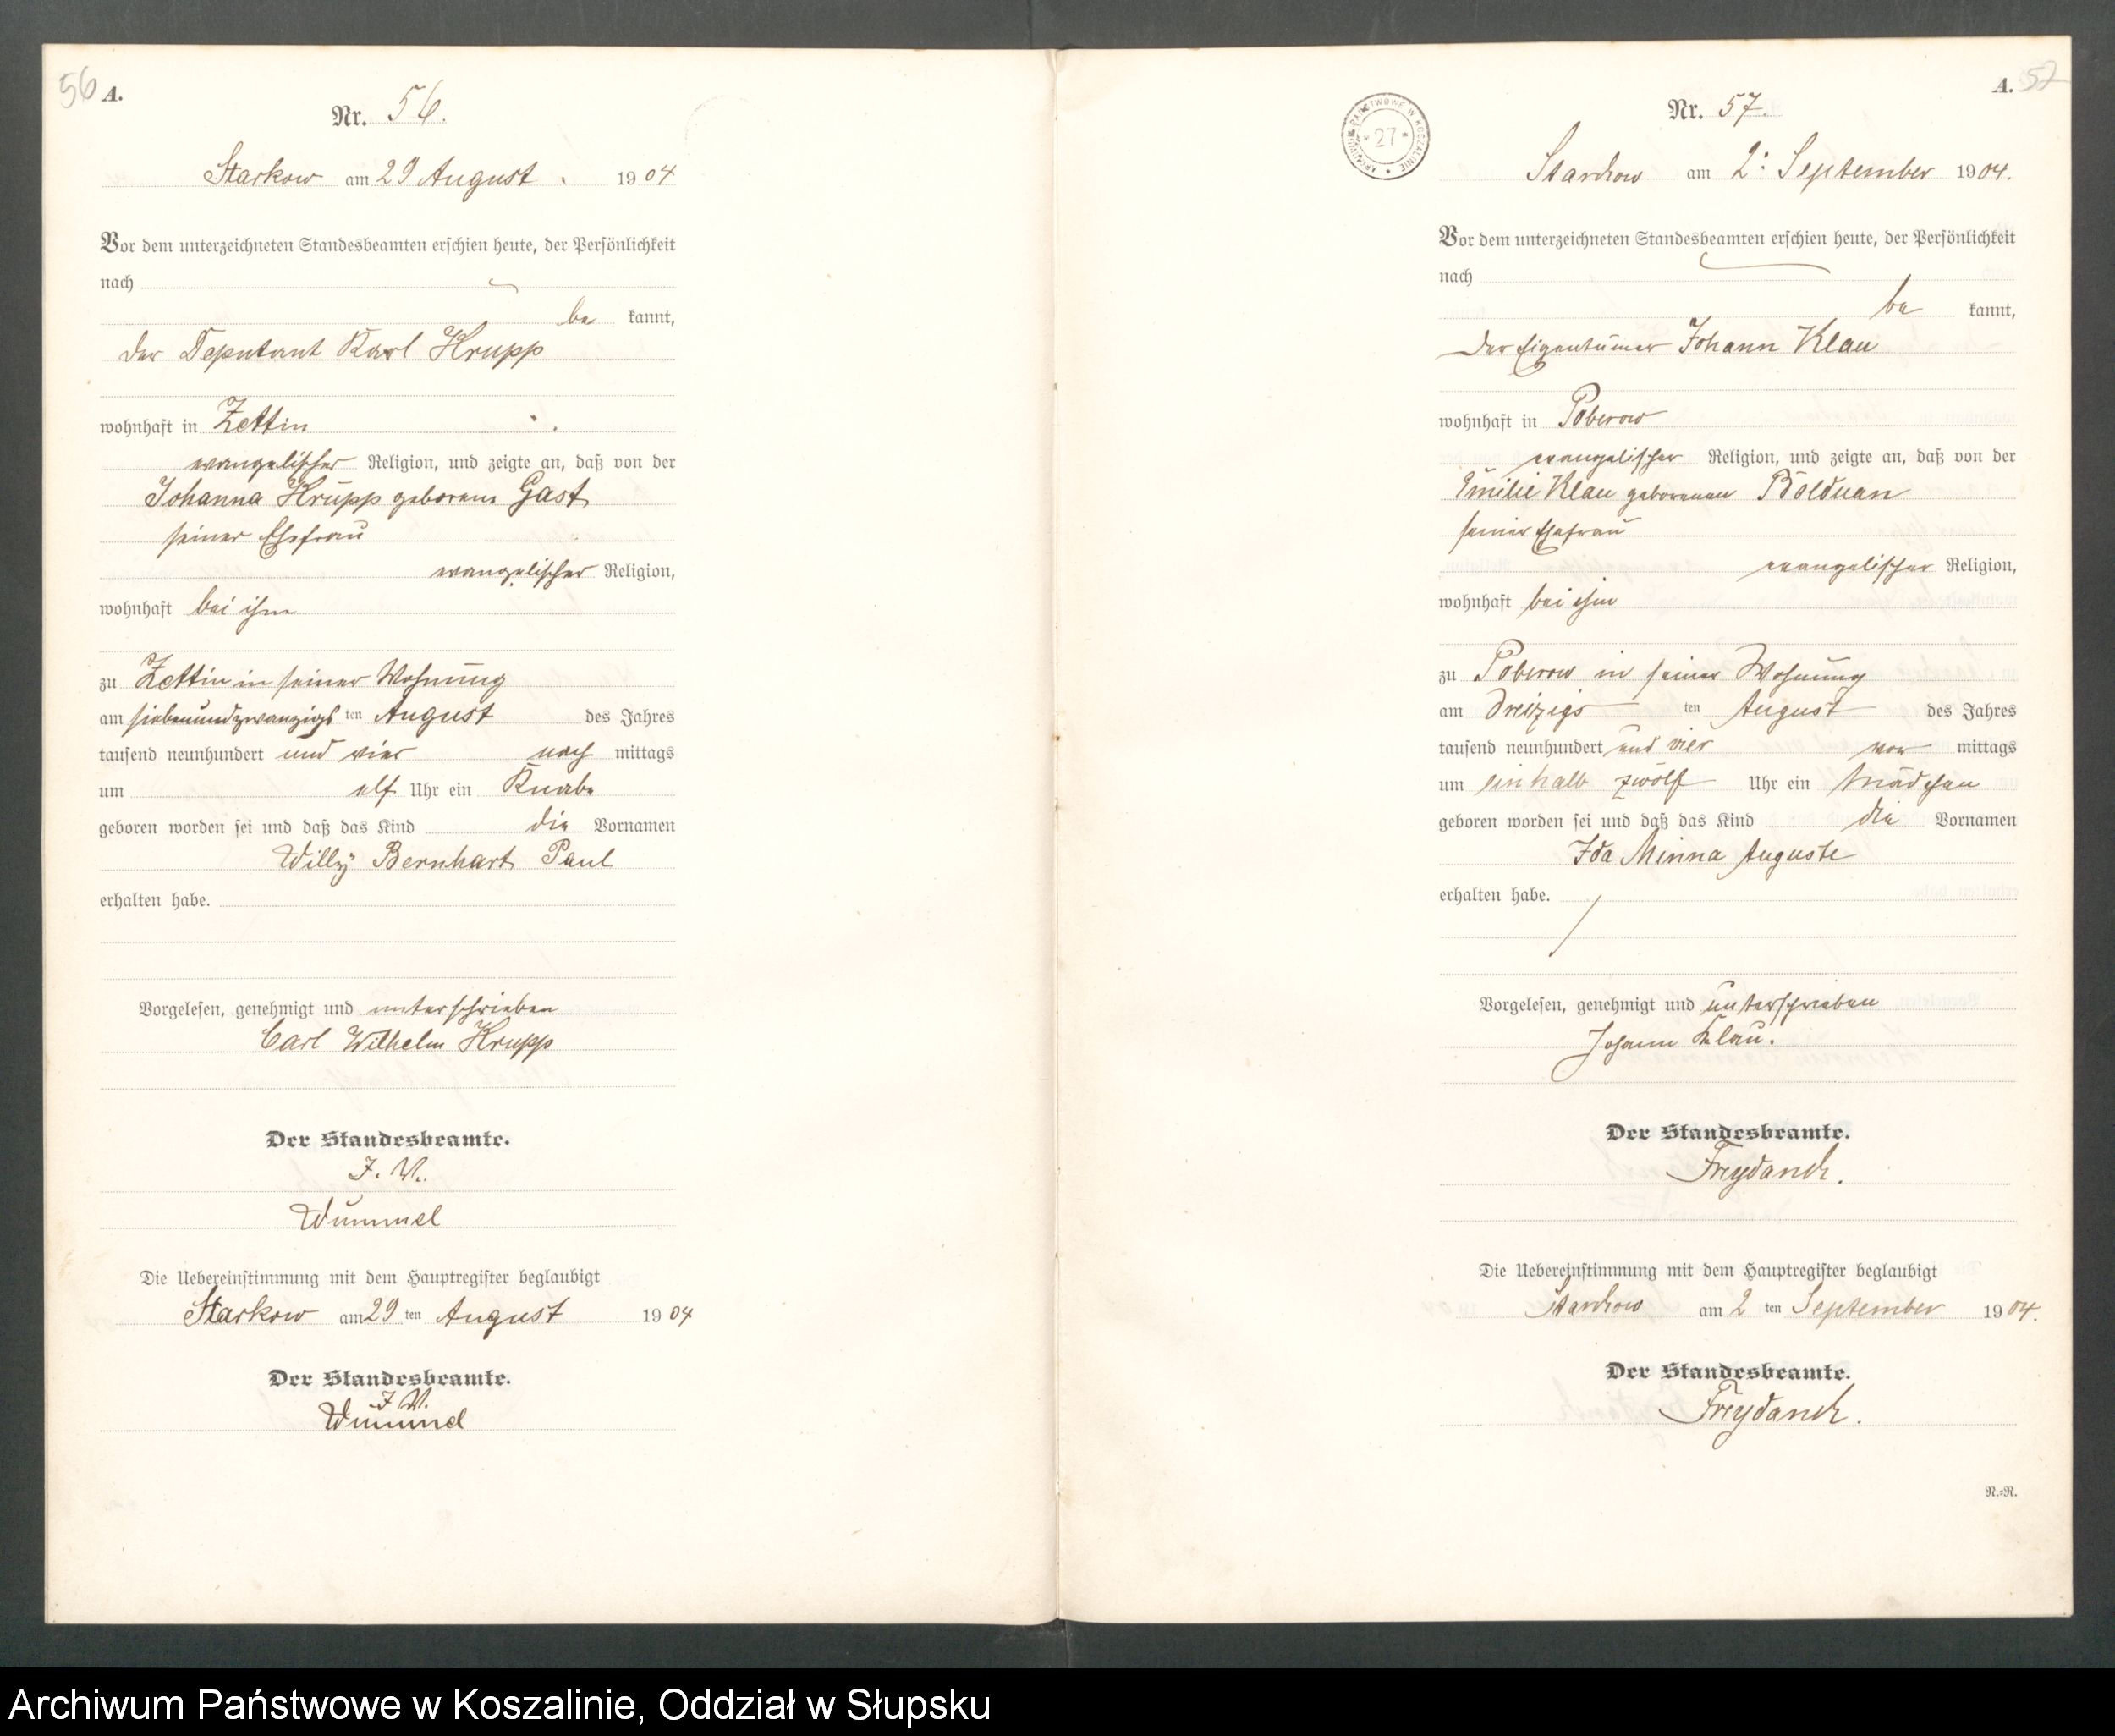 56 A.
Nr. 56.
Starkow am 29 August. 1904
Vor dem unterzeichneten Standesbeamten erschien heute, der Persönlichkeit
nach
be kannt,
der Deputant Karl Krupp
wohnhaft in Zettin
evangelischer Religion, und zeigte an, daß von der
Johanna Krupp geborene Gast
seiner Ehefrau
evangelischer Religion,
wohnhaft bei ihm
zu Zettin in seiner Wohnung
am siebenundzwanzigsten August des Jahres
tausend neunhundert und vier nach mittags
um elf Uhr ein Knabe
geboren worden sei und daß das Kind die Vornamen
Willy Bernhart Paul
erhalten habe.
Vorgelesen, genehmigt und unterschrieben
Carl Wilhelm Krupp
Der Standesbeamte.
I. V.
Wummel
Die Uebereinstimmung mit dem Hauptregister beglaubigt
Starkow am 29 ten August 1904
Der Standesbeamte.
I. V.
Wummel
A. 57
ARCHIWUM PAŃSTWOWE W KOSZALINIE
* 27 *
Nr. 57.
Starckow am 2. September 1904.
Vor dem unterzeichneten Standesbeamten erschien heute, der Persönlichkeit
nach
be kannt,
der Eigentümer Johann Klau
wohnhaft in Poberow
evangelischer Religion, und zeigte an, daß von der
Emilie Klau geborenen Bolduan
seiner Ehefrau
evangelischer Religion,
wohnhaft bei ihm
zu Poberow in seiner Wohnung
am dreizigsten August des Jahres
tausend neunhundert und vier vor mittags
um ein halb zwölf Uhr ein Mädchen
geboren worden sei und daß das Kind die Vornamen
Ida Minna Auguste
erhalten habe.
Vorgelesen, genehmigt und unterschrieben
Johann Klau.
Der Standesbeamte.
Freydanck.
Die Uebereinstimmung mit dem Hauptregister beglaubigt
Starckow am 2 ten September 1904.
Der Standesbeamte.
Freydanck.
R.=R.
Archiwum Państwowe w Koszalinie, Oddział w Słupsku